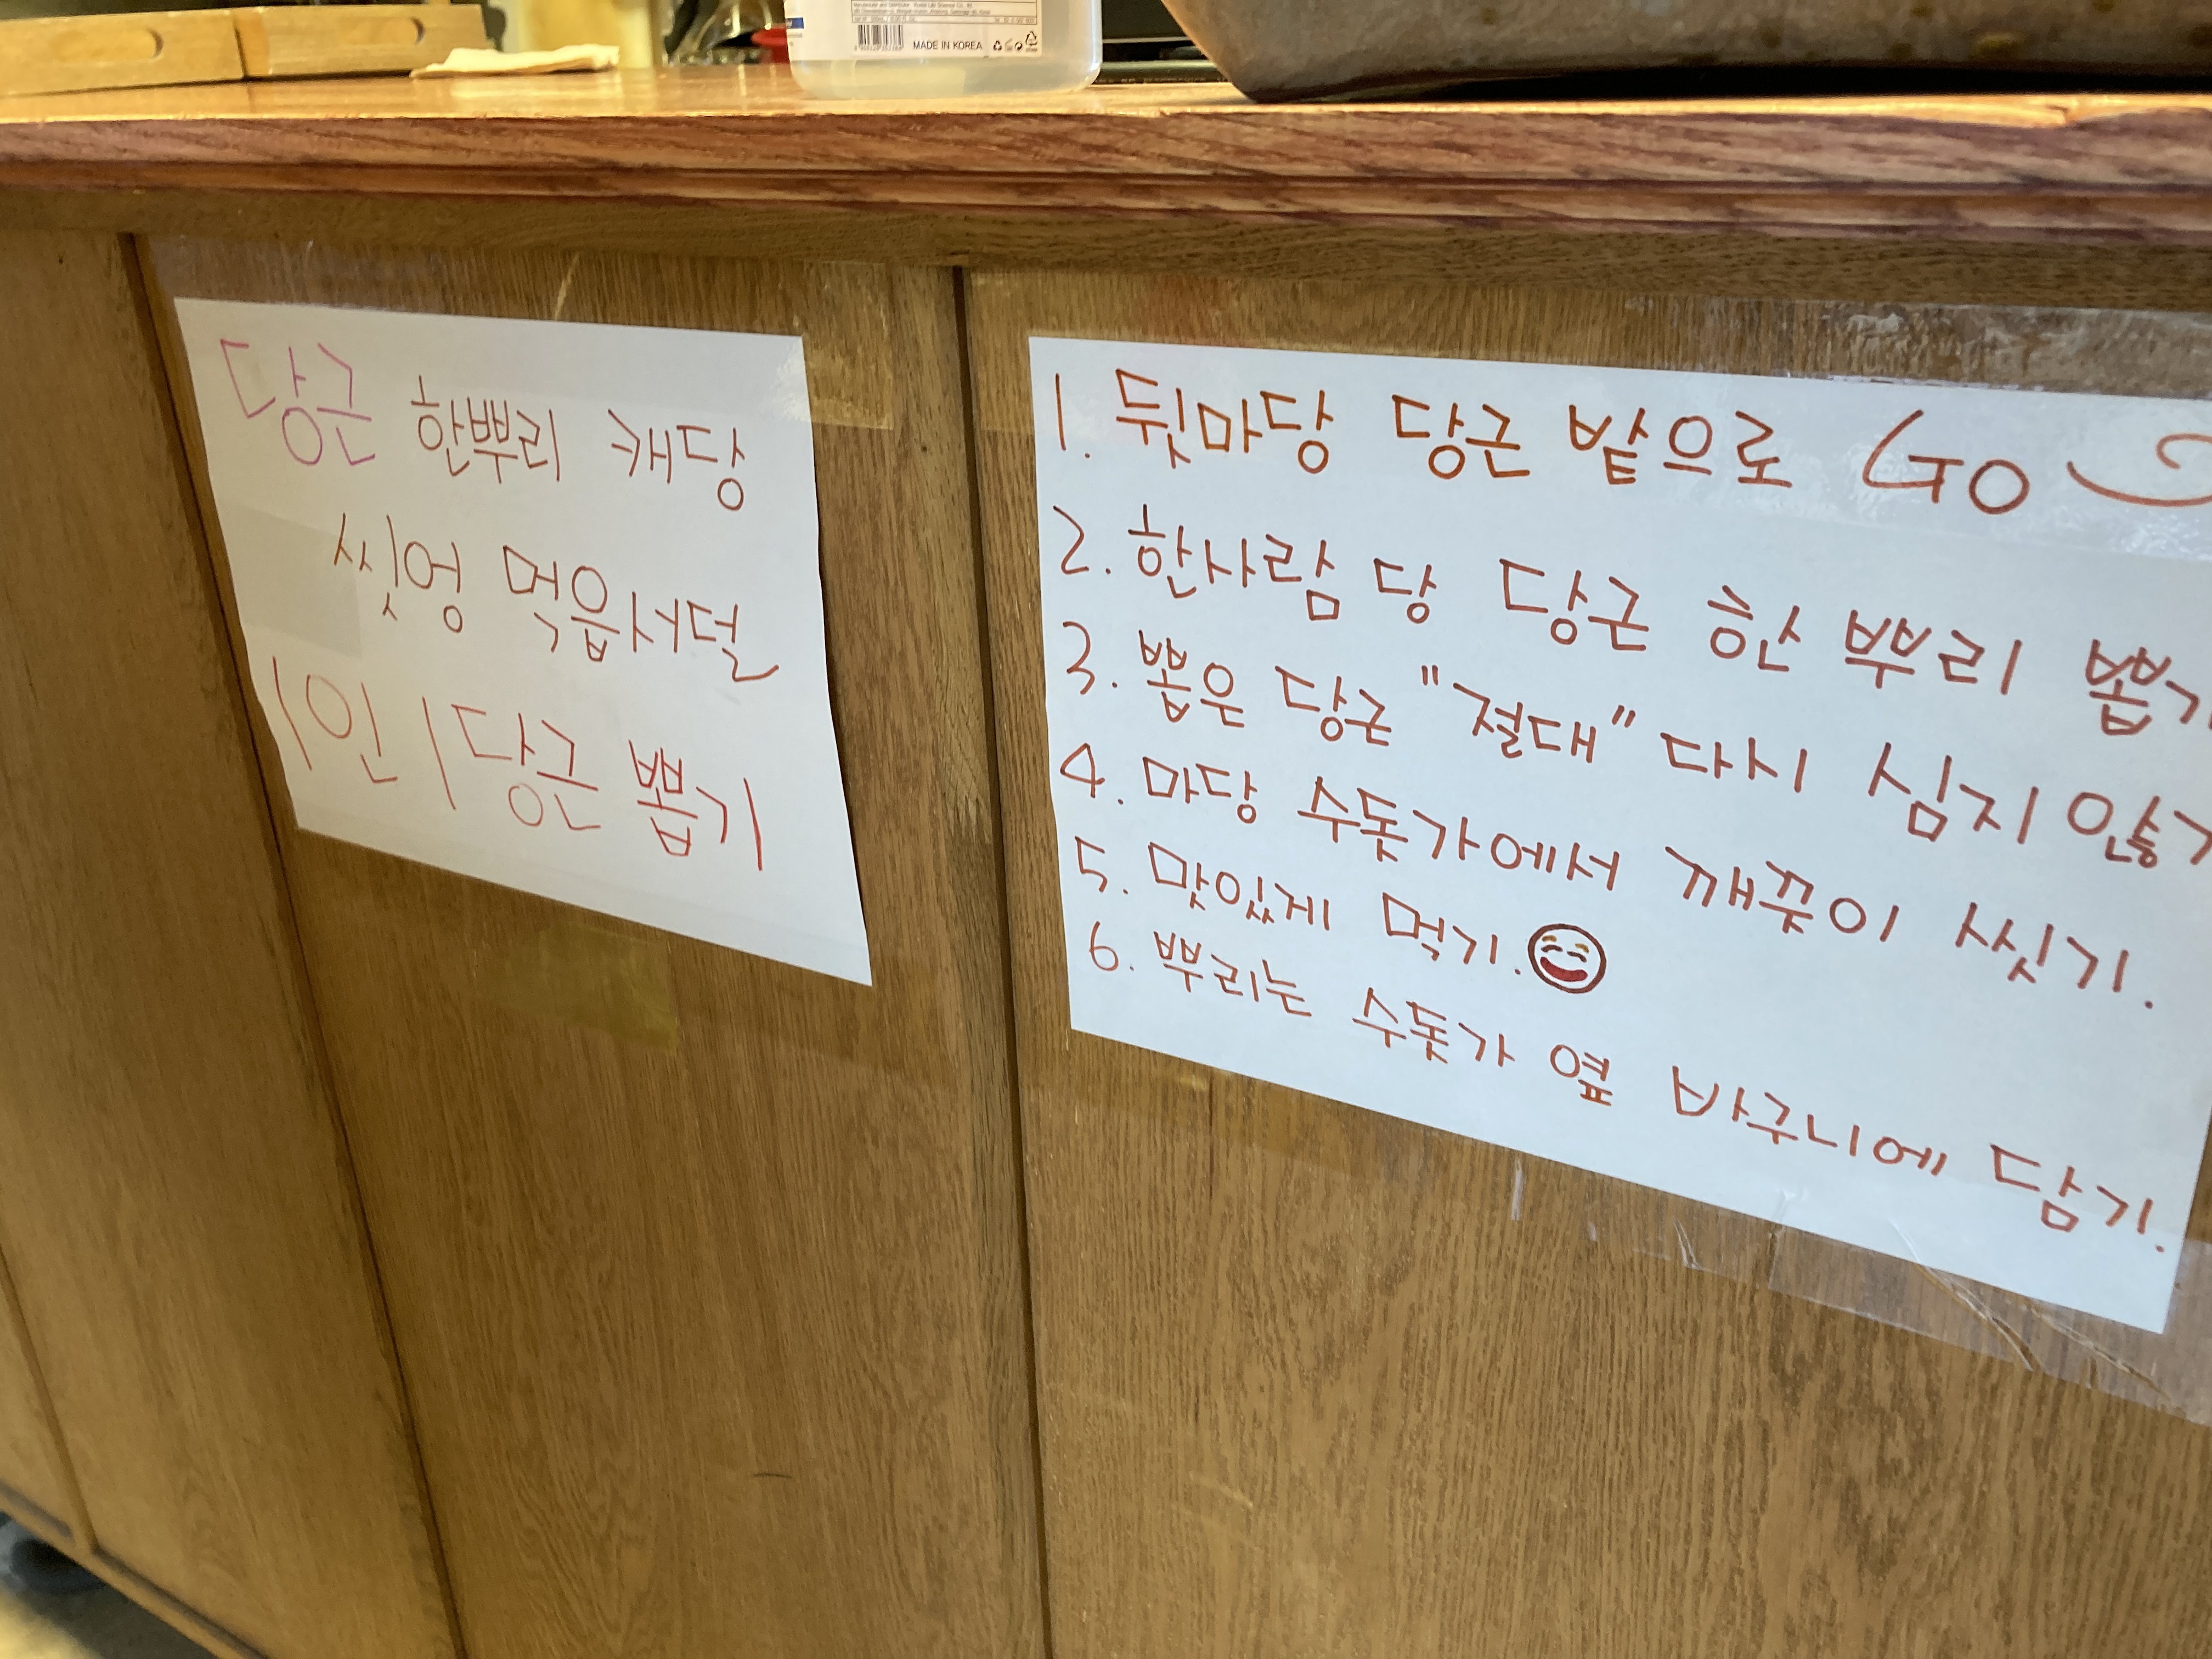 MADE IN KOREA
당근 한뿌리 캐당
씻엉 먹읍서덜
1인 1당근 뽑기
1. 뒷마당 당근 밭으로 GO
2. 한사람 당 당근 한 뿌리 뽑기
3. 뽑은 당근 "절대" 다시 심지 않기
4. 마당 수돗가에서 깨끗이 씻기.
5. 맛있게 먹기.
6. 뿌리는 수돗가 옆 바구니에 담기.